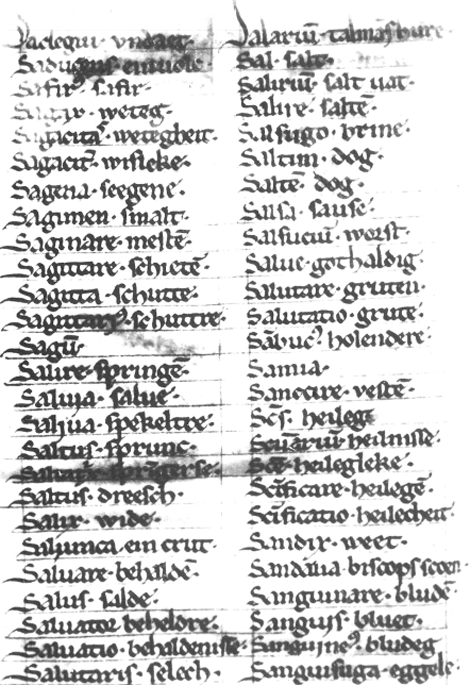 Saducens
Safirꝰ · safir·
Sagax · weteg·
Sagacitas · wetegheit·
Sagacit̄· wisleke·
Sagena · seegene·
Sagimen · smalt·
Saginare · mestē·
Sagittare · schietē·
Sagitta · schutte·
Sagittariꝰ · schuttre·
Sagū·
Salire · springē·
Saliua · salue·
Saliua · spekeltre·
Saltus · sprunc·
Saltus · dreesch·
Salix · wide·
Saliunca · ein crut·
Saluare · behaldē·
Salus · salde·
Saluator · beheldre·
Saluatio · behaldenisse·
Salutaris · selech·
Salariū ·
Sal · salt·
Salinū · salt uat·
Salire · saltē·
Salsugo · brine·
Saltim · dog·
Saltē · dog·
Salsa · sause·
Salsuciū · worst·
Salue · got haldig·
Salutare · gruten·
Salutatio · grute·
Sābucꝰ · holendere·
Samia·
Sanccire · vestē·
Sc̄s · heileg
heilnisse·
Sc̄e · heilegleke·
Sc̄ificare · heilegē·
Sc̄ificatio · heilecheit·
Sandix · weet·
Sandalia · biscops scoen·
Sanguinare · bludē·
Sanguis · bluet·
Sanguineꝰ · bludeg
Sanguisuga · eggele·